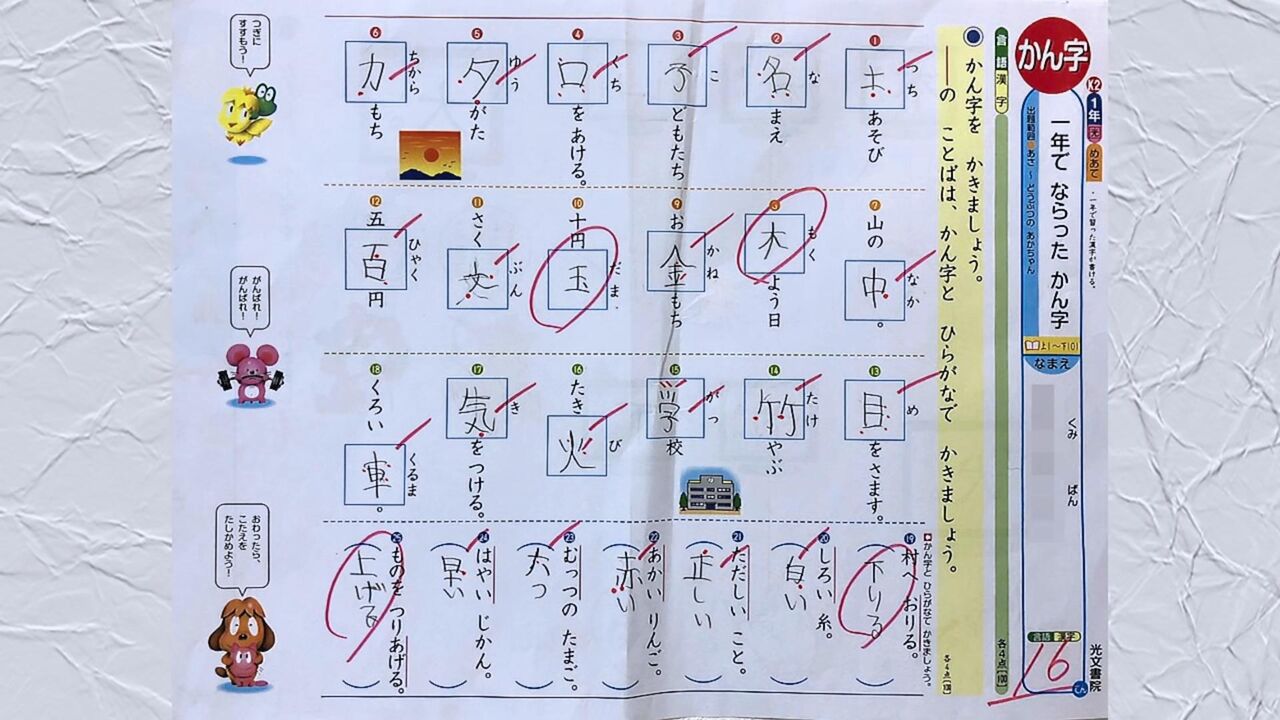 かん字
K2
1年
光
めあて
・一年で習った漢字が書ける。
一年で ならった かん字
出題範囲 あさ ~ どうぶつの あかちゃん
上1~下101
なまえ
くみ
ばん
言語 漢字
16
てん
光文書院
言語 漢字
各4点 100
かん字を かきましょう。
――の ことばは、かん字と ひらがなで かきましょう。
1 土あそび つち
2 名まえ な
3 子どもたち こ
4 口をあける。 くち
5 夕がた ゆう
6 力もち ちから
つぎに すすもう!
7 山の中。 なか
8 木よう日 もく
9 お金もち かね
10 十円玉 だま
11 さく文 ぶん
12 五百円 ひゃく
がんばれ! がんばれ!
13 目をさます。 め
14 竹やぶ たけ
15 学校 がっ
16 たき火 び
17 気をつける。 き
18 くろい車。 くるま
かん字と ひらがなで かきましょう。
各4点
19 村へ おりる。
下りる
20 しろい 糸。
白い
21 ただしい こと。
正しい
22 あかい りんご。
赤い
23 むっつの たまご。
六つ
24 はやい じかん。
早い
25 ものを つりあげる。
上げる
おわったら、 こたえを たしかめよう!